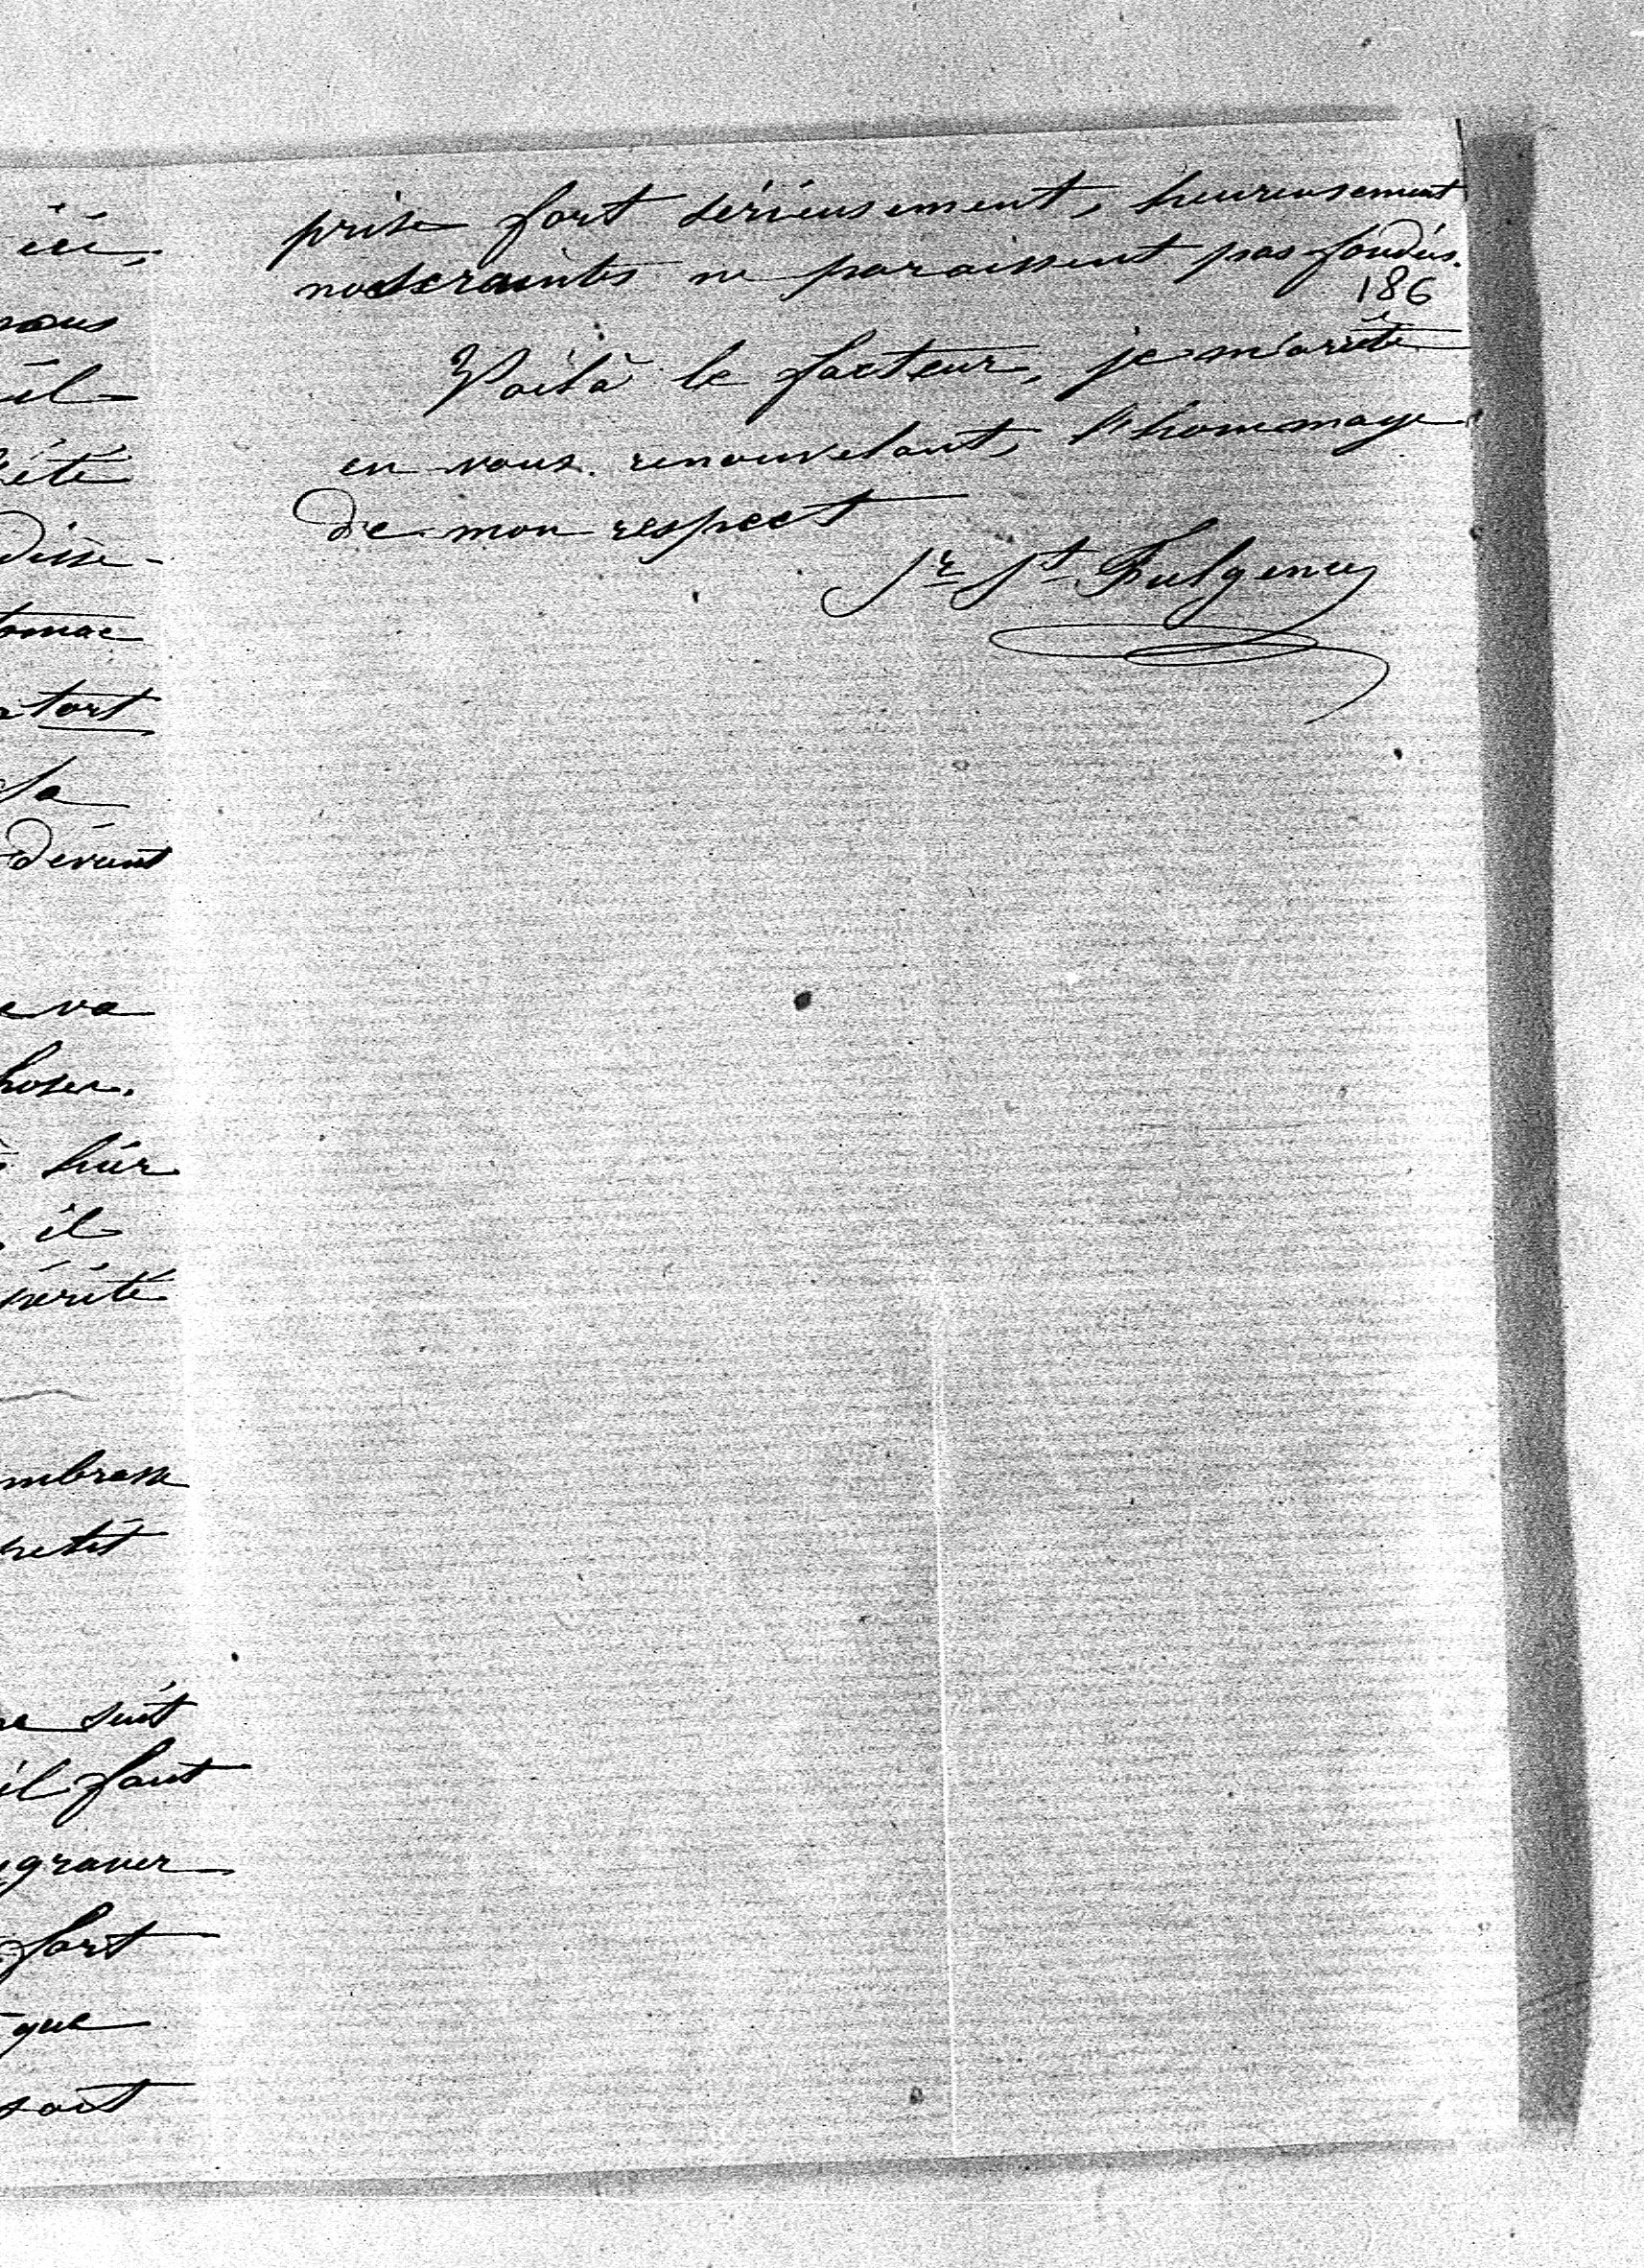 ici,
nous
il
été
disse-
tomac
tort
sa
devant
va
hoses.
hier
il
vérité
mbrasse
petit
suit
il faut
graver
fort
que
soit
prise fort sérieusement, heureusement
nos craintes ne paraissent pas fondées.
186
Voilà le facteur, je m'arrête
en vous renouvelant, l'hommage
de mon respect
Sr St Fulgence